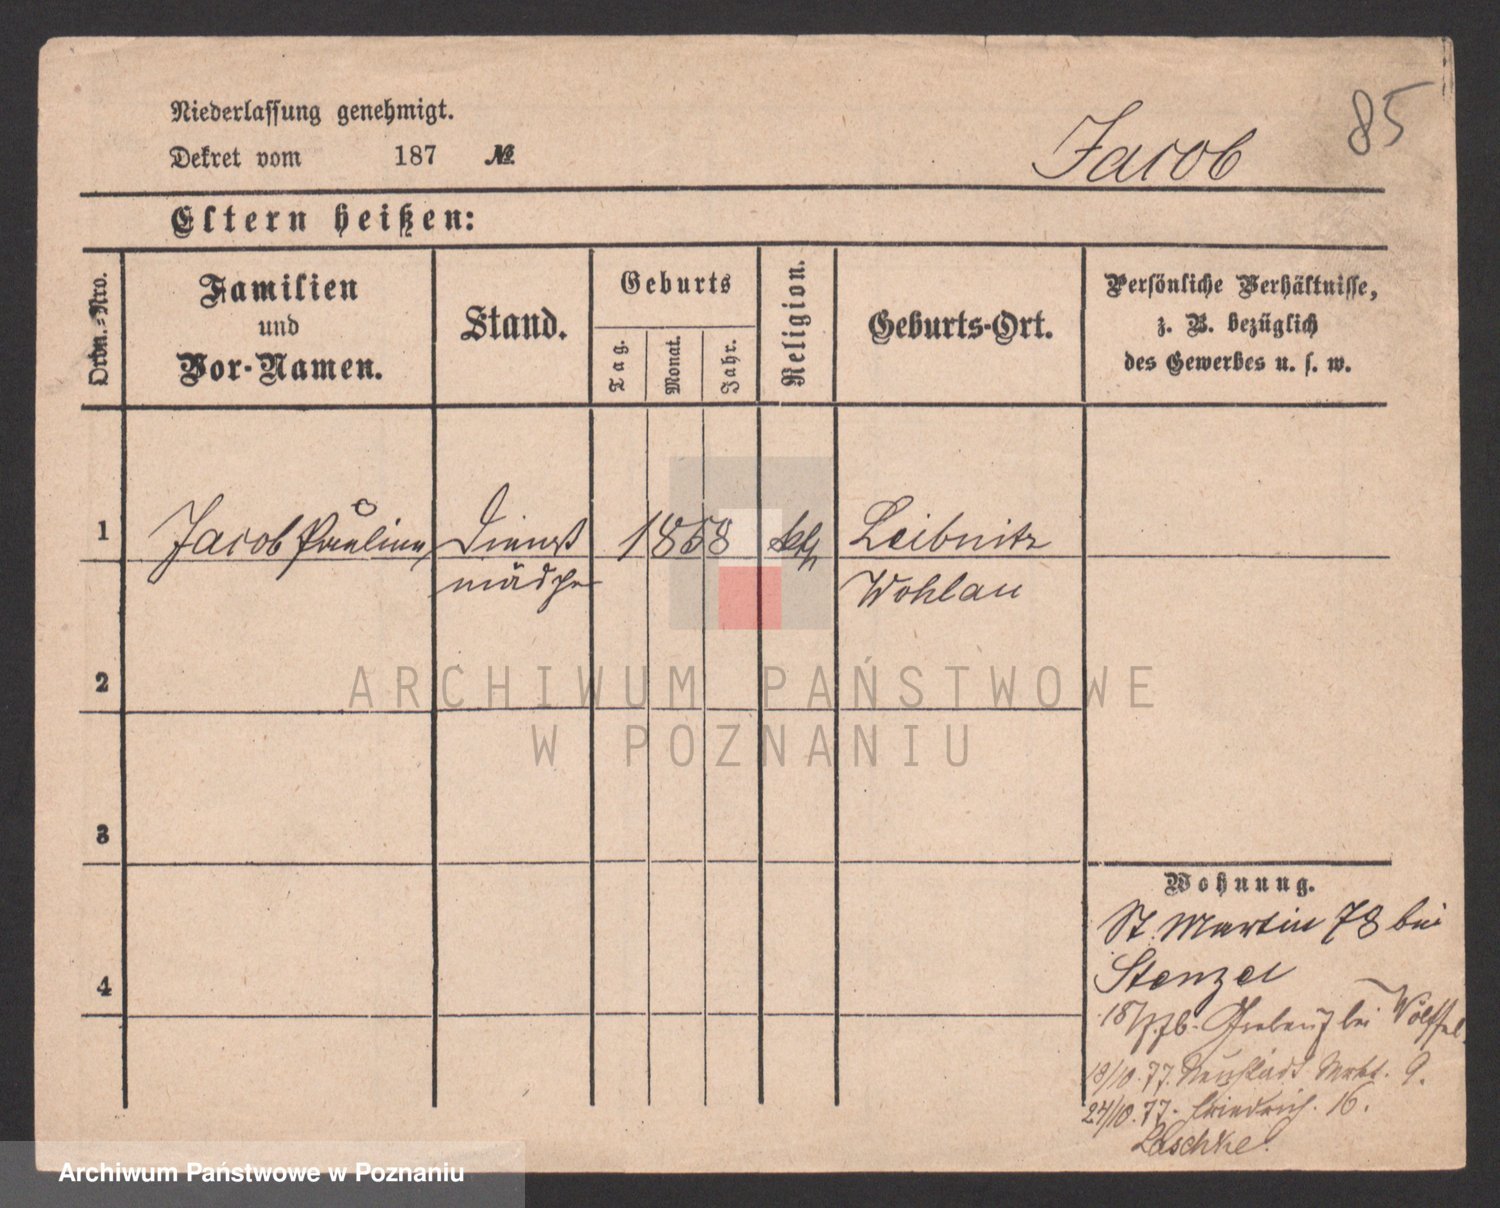 85
Niederlassung genehmigt.
Dekret vom 187 №
Jacob
Eltern heißen:
Ordn.-Nro.
Familien
und
Vor-Namen.
Stand.
Geburts
Tag.
Monat.
Jahr.
Religion.
Geburts-Ort.
Persönliche Verhältnisse,
z. B. bezüglich
des Gewerbes u. s. w.
1 Jacob Pauline Dienst 1858 kth Leibnitz
mädchen Wohlau
2
ARCHIWUM PAŃSTWOWE
W POZNANIU
3
Wohnung.
St. Martin 78 bei
Stenzel
4
bei Wölffel
18/10. 77. Neustädt Mrkt. 9.
24/10. 77. Friedrich. 16.
Archiwum Państwowe w Poznaniu